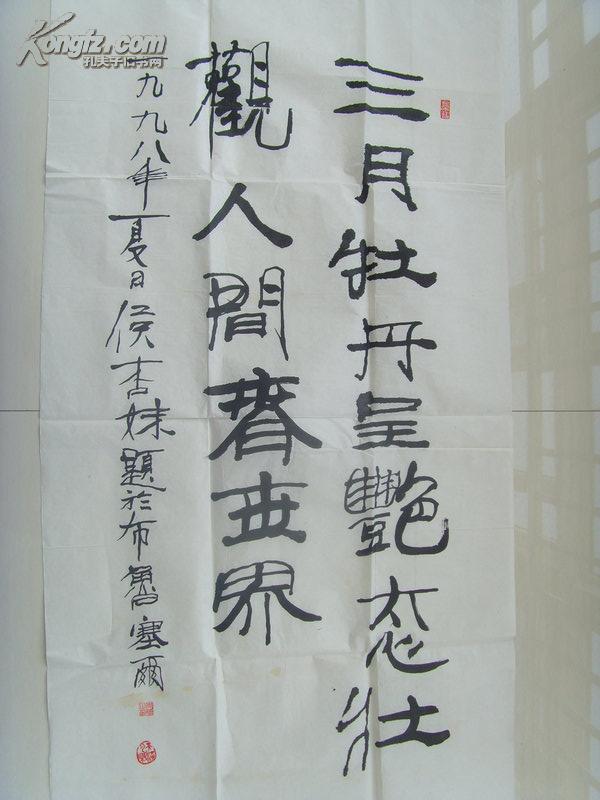 三月牡丹呈艷态壮
觀人間春世界
一九九八年夏日侯杏妹题於布魯塞爾
Kongfz.com
孔夫子旧书网